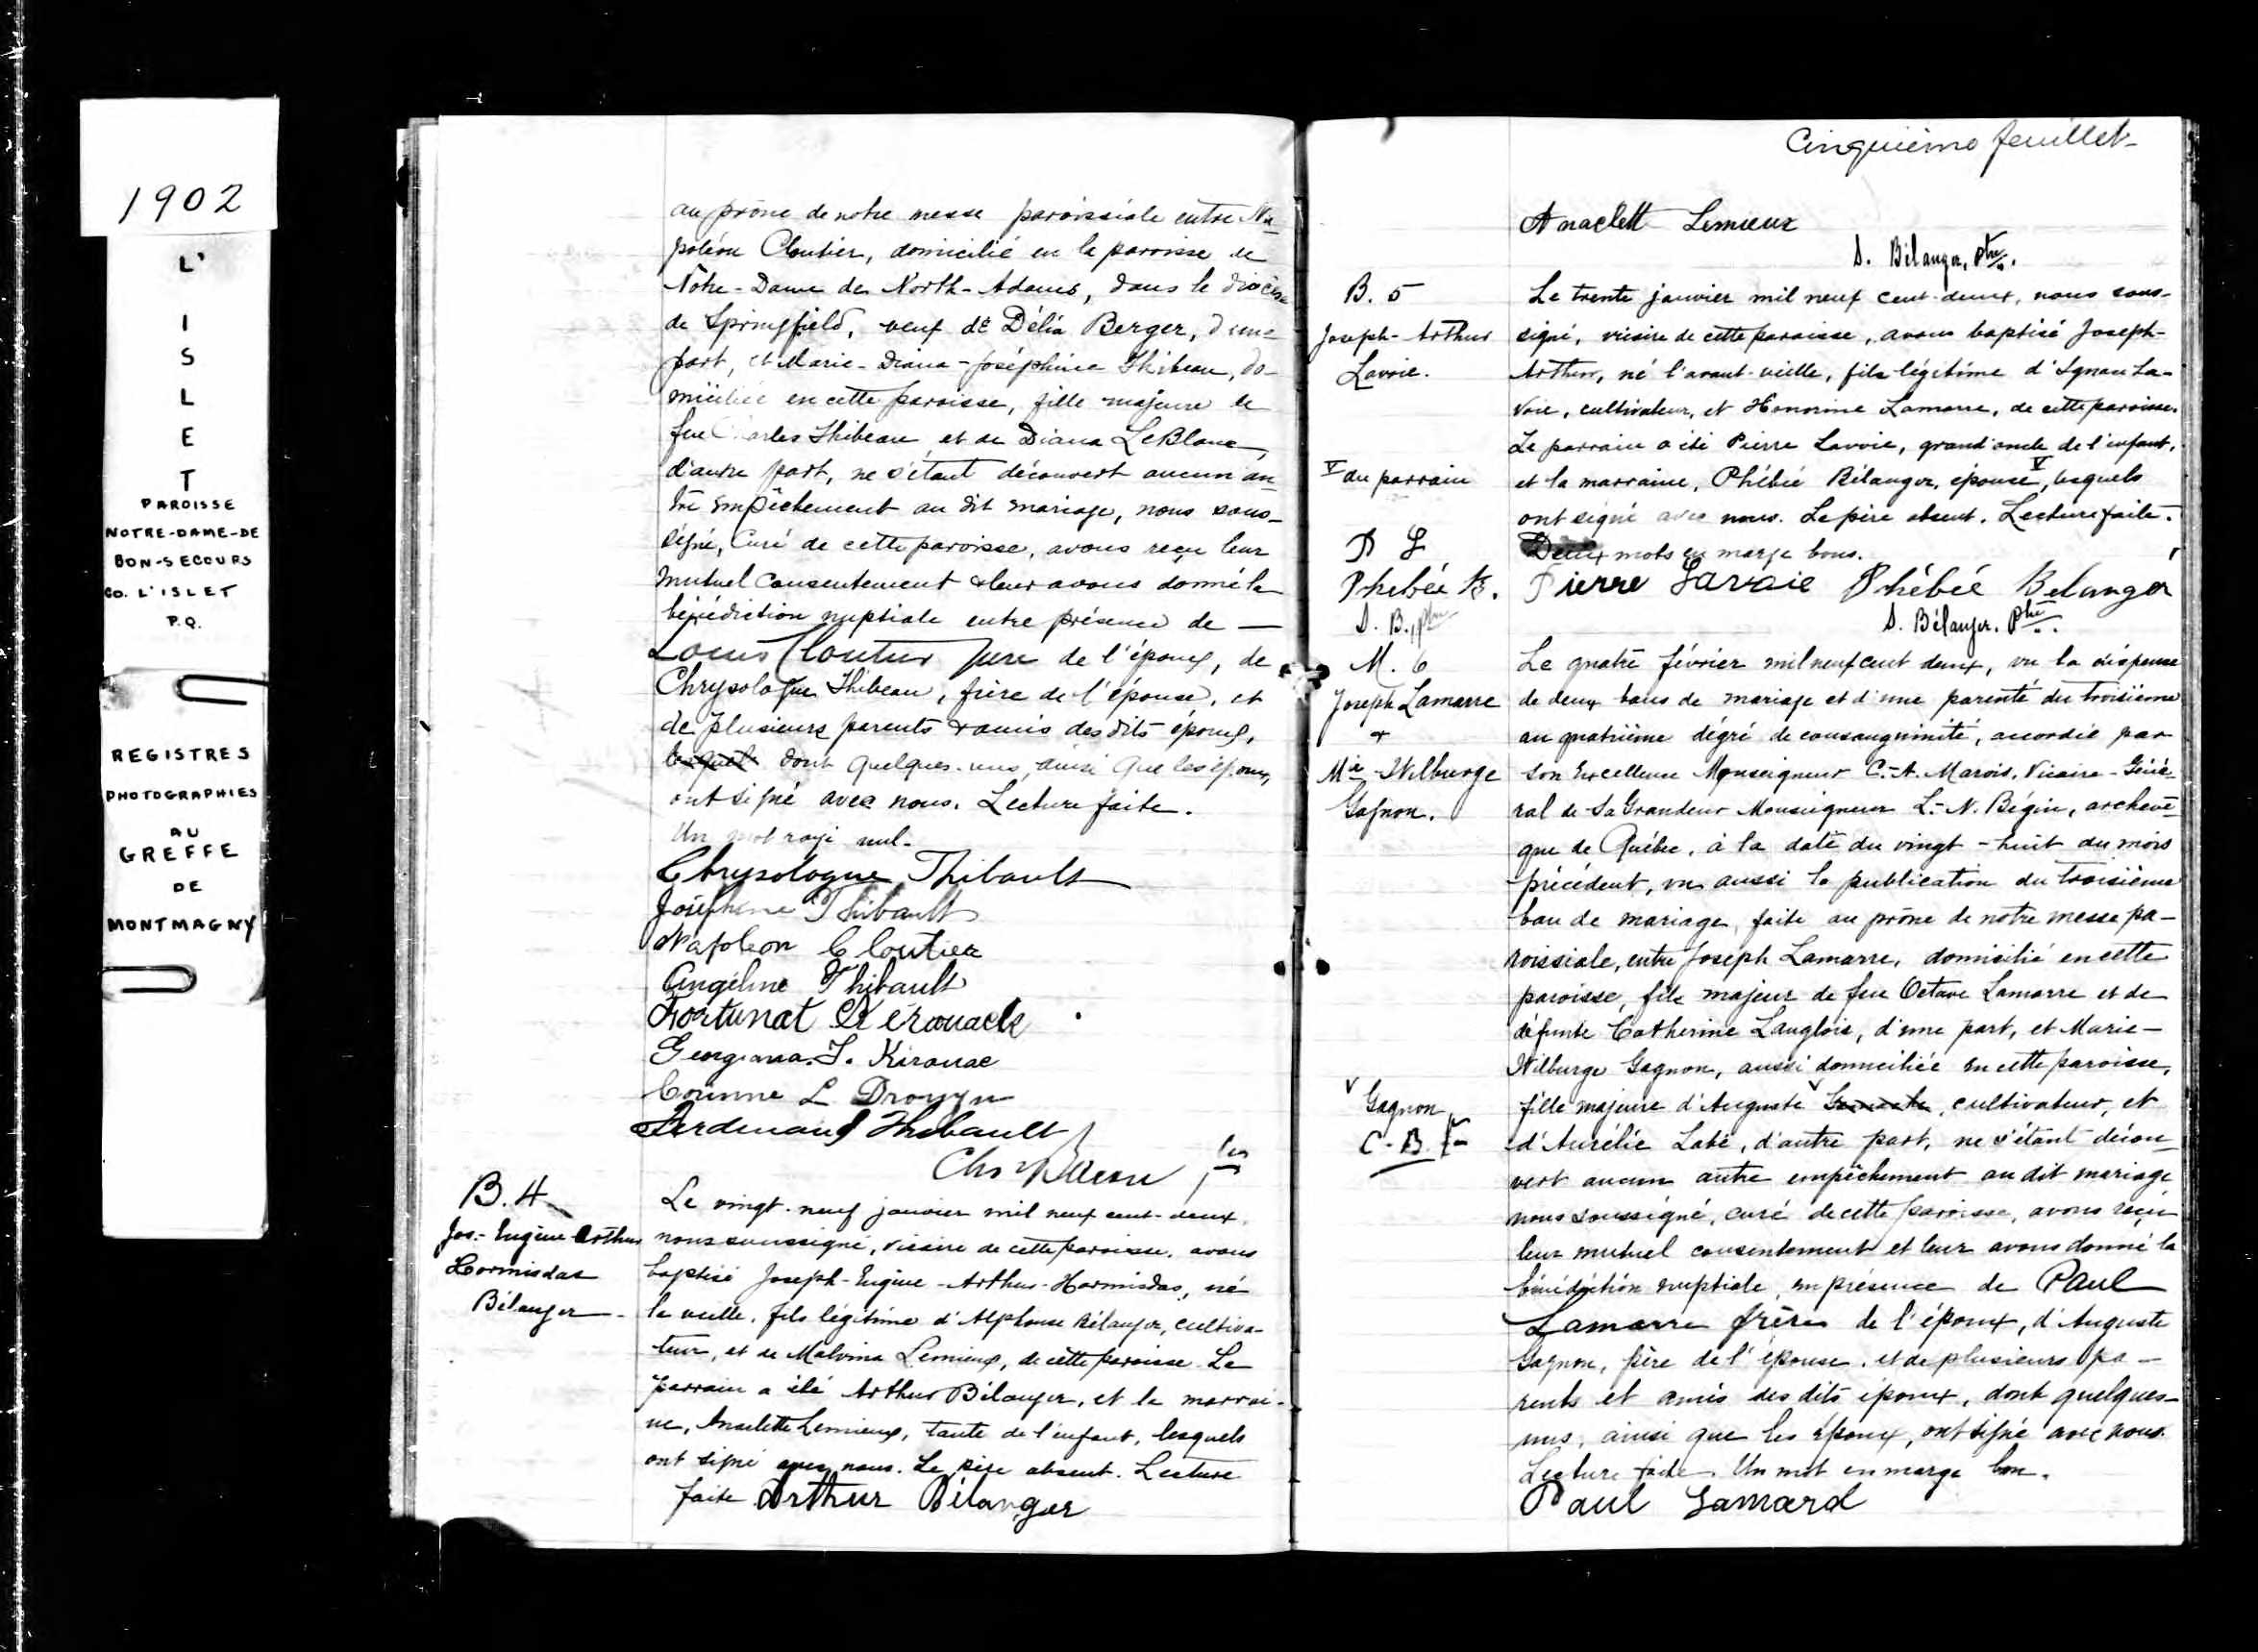 1902
L'
I
S
L
E
T
PAROISSE
NOTRE-DAME-DE
BON-SECOURS
CO. L'ISLET
P.Q.
REGISTRES
PHOTOGRAPHIES
AU
GREFFE
DE
MONTMAGNY
au prône de notre messe paroissiale entre Na-
poléon Cloutier, domicilié en la paroisse de
Notre-Dame de North-Adams, dans le diocèse
de Springfield, veuf de Délia Berger, d'une
part, et Marie-Diana-Joséphine Thibeau, do-
miciliée en cette paroisse, fille majeure de
feu Charles Thibeau et de Diana LeBlanc,
d'autre part, ne s'étant découvert aucun au-
tre empêchement au dit mariage, nous sous-
signé, Curé de cette paroisse, avons reçu leur
mutuel consentement & leur avons donné la
bénédiction nuptiale en présence de —
Louis Cloutier père de l'époux, de
Chrysologue Thibeau, frère de l'épouse, et
de plusieurs parents & amis des dits époux,
lesquels dont quelques-uns, ainsi que les époux,
ont signé avec nous. Lecture faite.
Un mot rayé nul.
Chrysologue Thibault
Joséphine Thibault
Napoleon Cloutier
Angéline Thibault
Fortunat Kérouack
Georgianna. T. Kirouac
Corinne L Drouyn
Ferdinand Thibault
B. 4
Jos.-Eugène-Arthur
Hormisdas
Bélanger
Le vingt-neuf janvier mil neuf cent-deux,
nous soussigné, vicaire de cette paroisse, avons
baptisé Joseph-Eugène-Arthur-Hormisdas, né
la veille, fils légitime d'Alphonse Bélanger, cultiva-
teur, et de Malvina Lemieux, de cette paroisse. Le
parrain a été Arthur Bélanger, et la marrai-
ne, Anaclette Lemieux, tante de l'enfant, lesquels
ont signé avec nous. Le père absent. Lecture
faite Arthur Bélanger
Cinquième feuillet
Anaclett Lemieux
D. Bélanger, Ptre.
B. 5
Joseph-Arthur
Lavoie.
Le trente janvier mil neuf cent-deux, nous sous-
signé, vicaire de cette paroisse, avons baptisé Joseph-
Arthur, né l'avant-veille, fils légitime d'Ignace La-
voie, cultivateur, et Honorine Lamarre, de cette paroisse.
Le parrain a été Pierre Lavoie, grand'oncle de l'enfant,
et la marraine, Phébée Bélanger, épouse V, lesquels
V du parrain
ont signé avec nous. Le père absent. Lecture faite.
Deux mots en marge bons.
P L
Phebée B.
D. B. ptre
Pierre Lavoie Phébée Belanger
D. Bélanger. Ptre.
M. 6
Joseph Lamarre
&
Mie-Wilburge
Gagnon.
Le quatre février mil neuf cent deux, vu la dispense
de deux bans de mariage et d'une parenté du troisième
au quatrième dégré de consanguinité, accordée par
Son Excellence Monseigneur C.-A. Marois, Vicaire-Géné-
ral de Sa Grandeur Monseigneur L.-N. Bégin, archevê-
que de Québec, à la date du vingt-huit du mois
précédent, vu aussi la publication du troisième
ban de mariage, faite au prône de notre messe pa-
roissiale, entre Joseph Lamarre, domicilié en cette
paroisse, fils majeur de feu Octave Lamarre et de
défunte Catherine Langlois, d'une part, et Marie-
Wilburge Gagnon, aussi domiciliée en cette paroisse,
fille majeure d'Auguste V, cultivateur, et
V Gagnon
C-B.
d'Aurélie Labé, d'autre part, ne s'étant décou-
vert aucun autre empêchement au dit mariage
nous soussigné, curé de cette paroisse, avons reçu
leur mutuel consentement et leur avons donné la
bénédiction nuptiale, en présence de Paul
Lamarre frère de l'époux, d'Auguste
Gagnon, père de l'épouse, et de plusieurs pa-
rents et amis des dits époux, dont quelques-
uns, ainsi que les époux, ont signé avec nous.
Lecture faite. Un mot en marge bon.
Paul Lamard